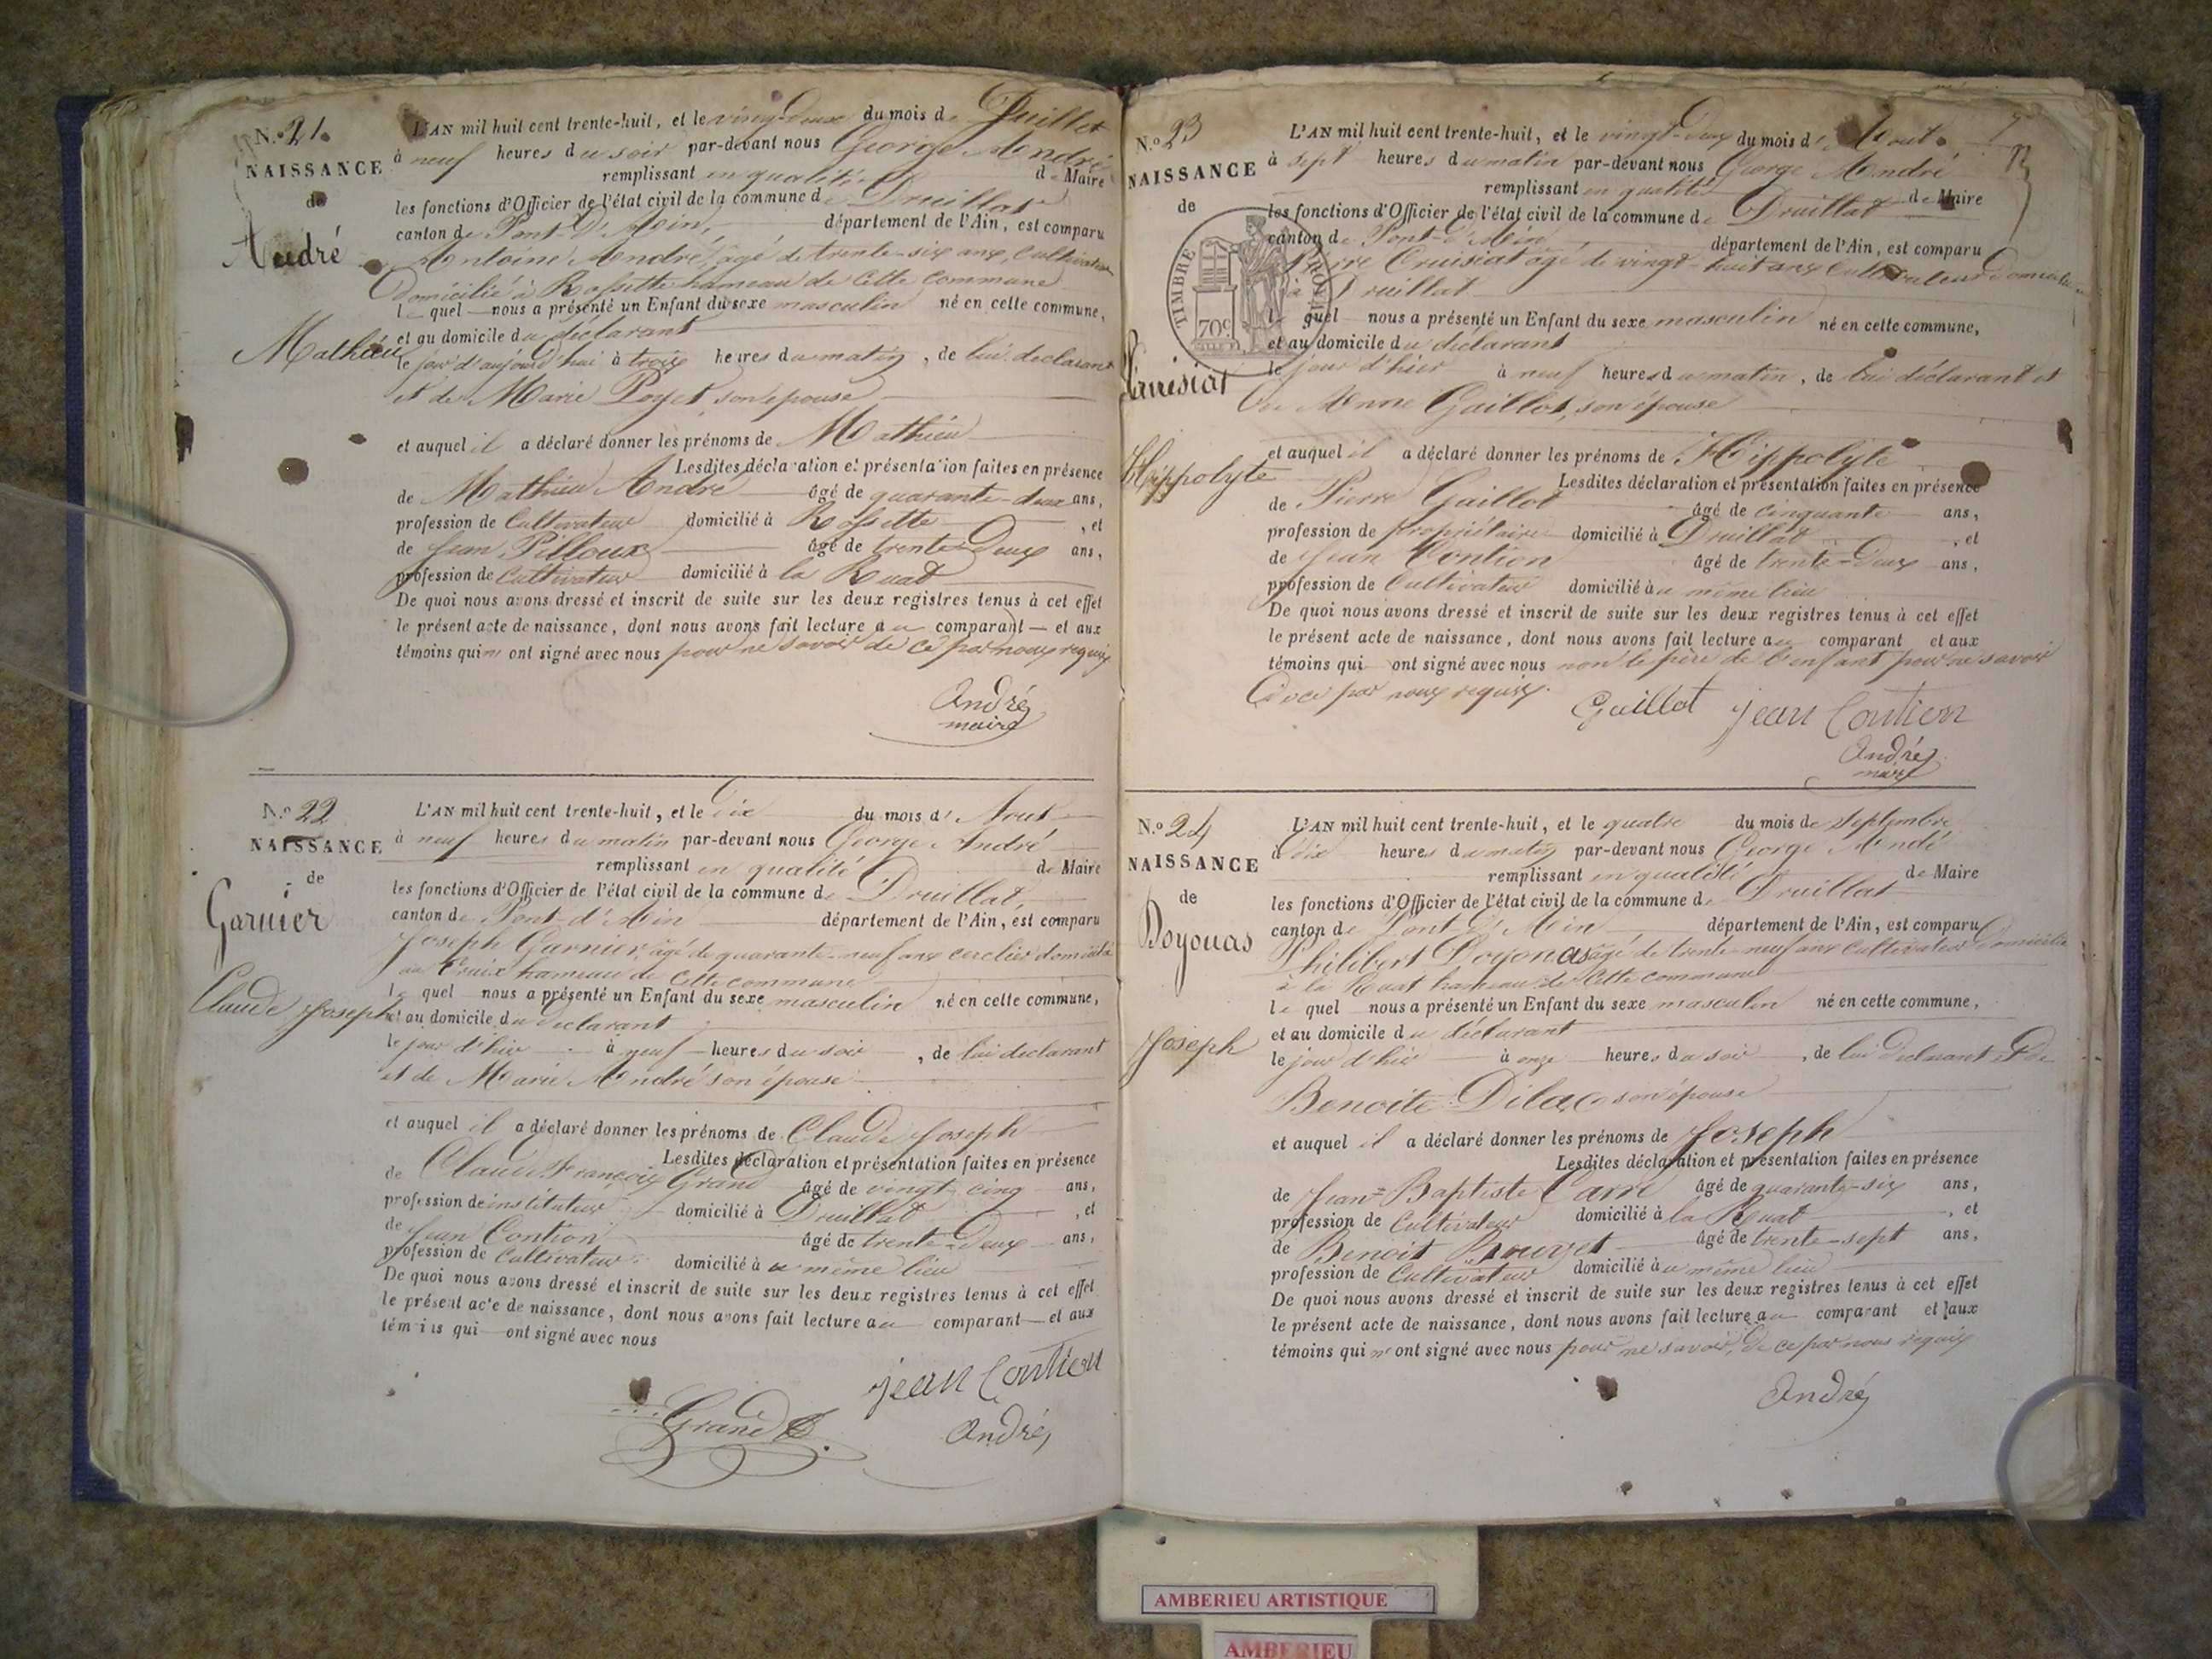 N.º 21.
NAISSANCE
de
André
Mathieu
L'AN mil huit cent trente-huit, et le vingt-deux du mois de Juillet
à neuf heures du soir par-devant nous George André
remplissant en qualité de Maire
les fonctions d'Officier de l'état civil de la commune de Druillat
canton de Pont-d'Ain, département de l'Ain, est comparu
Antoine André, âgé de trente-six ans, Cultivateur
Domicilié à Rossette hameau de cette commune
lequel nous a présenté un Enfant du sexe masculin né en cette commune,
et au domicile du déclarant
le jour d'aujourd'hui à trois heures du matin, de lui déclarant
et de Marie Poyet, son épouse
et auquel il a déclaré donner les prénoms de Mathieu
Lesdites déclaration et présentation faites en présence
de Mathieu André âgé de quarante-deux ans,
profession de Cultivateur domicilié à Rossette, et
de Jean Pilloux âgé de trente-Deux ans,
profession de Cultivateur domicilié à la Ruat
De quoi nous avons dressé et inscrit de suite sur les deux registres tenus à cet effet
le présent acte de naissance, dont nous avons fait lecture au comparant et aux
témoins qui n'ont signé avec nous pour ne savoir de ce par nous requis
André
maire
N.º 22
NAISSANCE
de
Garnier
Claude Joseph
L'AN mil huit cent trente-huit, et le Dix du mois d'Aout
à neuf heures du matin par-devant nous George André
remplissant en qualité de Maire
les fonctions d'Officier de l'état civil de la commune de Druillat,
canton de Pont-d'Ain département de l'Ain, est comparu
Joseph Garnier, âgé de quarante-neuf ans cerclier domicilié
au Craix hameau de cette commune
lequel nous a présenté un Enfant du sexe masculin né en cette commune,
et au domicile du Déclarant
le jour d'hier à neuf heures du soir, de lui déclarant
et de Marie André son épouse
et auquel il a déclaré donner les prénoms de Claude Joseph
Lesdites déclaration et présentation faites en présence
de Claude François Grand âgé de vingt-cinq ans,
profession de instituteur domicilié à Druillat, et
de Jean Contion âgé de trente-Deux ans,
profession de Cultivateur domicilié au même lieu
De quoi nous avons dressé et inscrit de suite sur les deux registres tenus à cet effet
le présent acte de naissance, dont nous avons fait lecture au comparant et aux
témoins qui ont signé avec nous
jean Contion
Grand
André
N.º 23
NAISSANCE
de
Cruisiat
Hippolyte
TIMBRE
70c
L'AN mil huit cent trente-huit, et le vingt-deux du mois d'Aout
à sept heures du matin par-devant nous George André
remplissant en qualité de Maire
les fonctions d'Officier de l'état civil de la commune de Druillat
canton de Pont-d'Ain département de l'Ain, est comparu
Pierre Cruisiat âgé de vingt-huit ans Cultivateur Domicilié
à Druillat
lequel nous a présenté un Enfant du sexe masculin né en cette commune,
et au domicile du déclarant
le jour d'hier à neuf heures du matin, de lui déclarant et
De Anne Gaillot, son épouse
et auquel il a déclaré donner les prénoms de Hippolyte
Lesdites déclaration et présentation faites en présence
de Pierre Gaillot âgé de cinquante ans,
profession de propriétaire domicilié à Druillat, et
de Jean Contion âgé de trente-Deux ans,
profession de Cultivateur domicilié au même lieu
De quoi nous avons dressé et inscrit de suite sur les deux registres tenus à cet effet
le présent acte de naissance, dont nous avons fait lecture au comparant et aux
témoins qui ont signé avec nous non le père de l'enfant pour ne savoir
De ce par nous requis.
Guillot jean Contion
André
maire
N.º 24
NAISSANCE
de
Doyonas
Joseph
L'AN mil huit cent trente-huit, et le quatre du mois de Septembre
à Dix heures du matin par-devant nous George André
remplissant en qualité de Maire
les fonctions d'Officier de l'état civil de la commune de Druillat
canton de Pont d'Ain département de l'Ain, est comparu
Philibert Doyonas âgé de trente-neuf ans Cultivateur Domicilié
à la Ruat hameau de cette commune
lequel nous a présenté un Enfant du sexe masculin né en cette commune,
et au domicile du déclarant
le jour d'hier à onze heures du soir, de lui Déclarant et de
Benoite Dilac son épouse
et auquel il a déclaré donner les prénoms de Joseph
Lesdites déclaration et présentation faites en présence
de Jean-Baptiste Carré âgé de quarante-six ans,
profession de Cultivateur domicilié à la Ruat, et
de Benoit Bouvet âgé de trente-sept ans,
profession de Cultivateur domicilié au même lieu
De quoi nous avons dressé et inscrit de suite sur les deux registres tenus à cet effet
le présent acte de naissance, dont nous avons fait lecture au comparant et aux
témoins qui n'ont signé avec nous pour ne savoir De ce par nous requis
André
AMBERIEU ARTISTIQUE
AMBERIEU